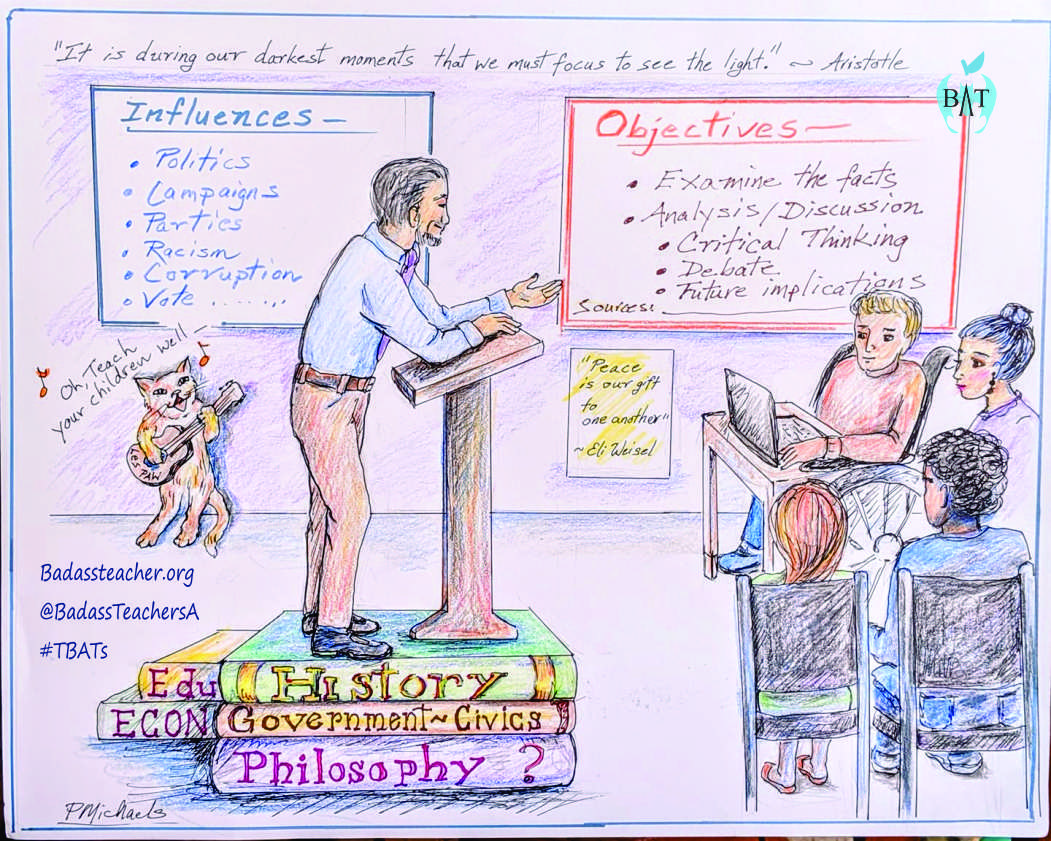 "It is during our darkest moments that we must focus to see the light." ~ Aristotle
BAT
Influences —
• Politics
• Campaigns
• Parties
• Racism
• Corruption
• Vote .......
Objectives —
• Examine the facts
• Analysis/Discussion
• Critical Thinking
• Debate
• Future implications
Sources:
"Peace
is our gift
to
one another"
~ Eli Weisel
Oh, Teach
your children well
LES PAW
Badassteacher.org
@BadassTeachersA
#TBATs
Edu
History
ECON
Government ~ Civics
Philosophy ?
PMichaels